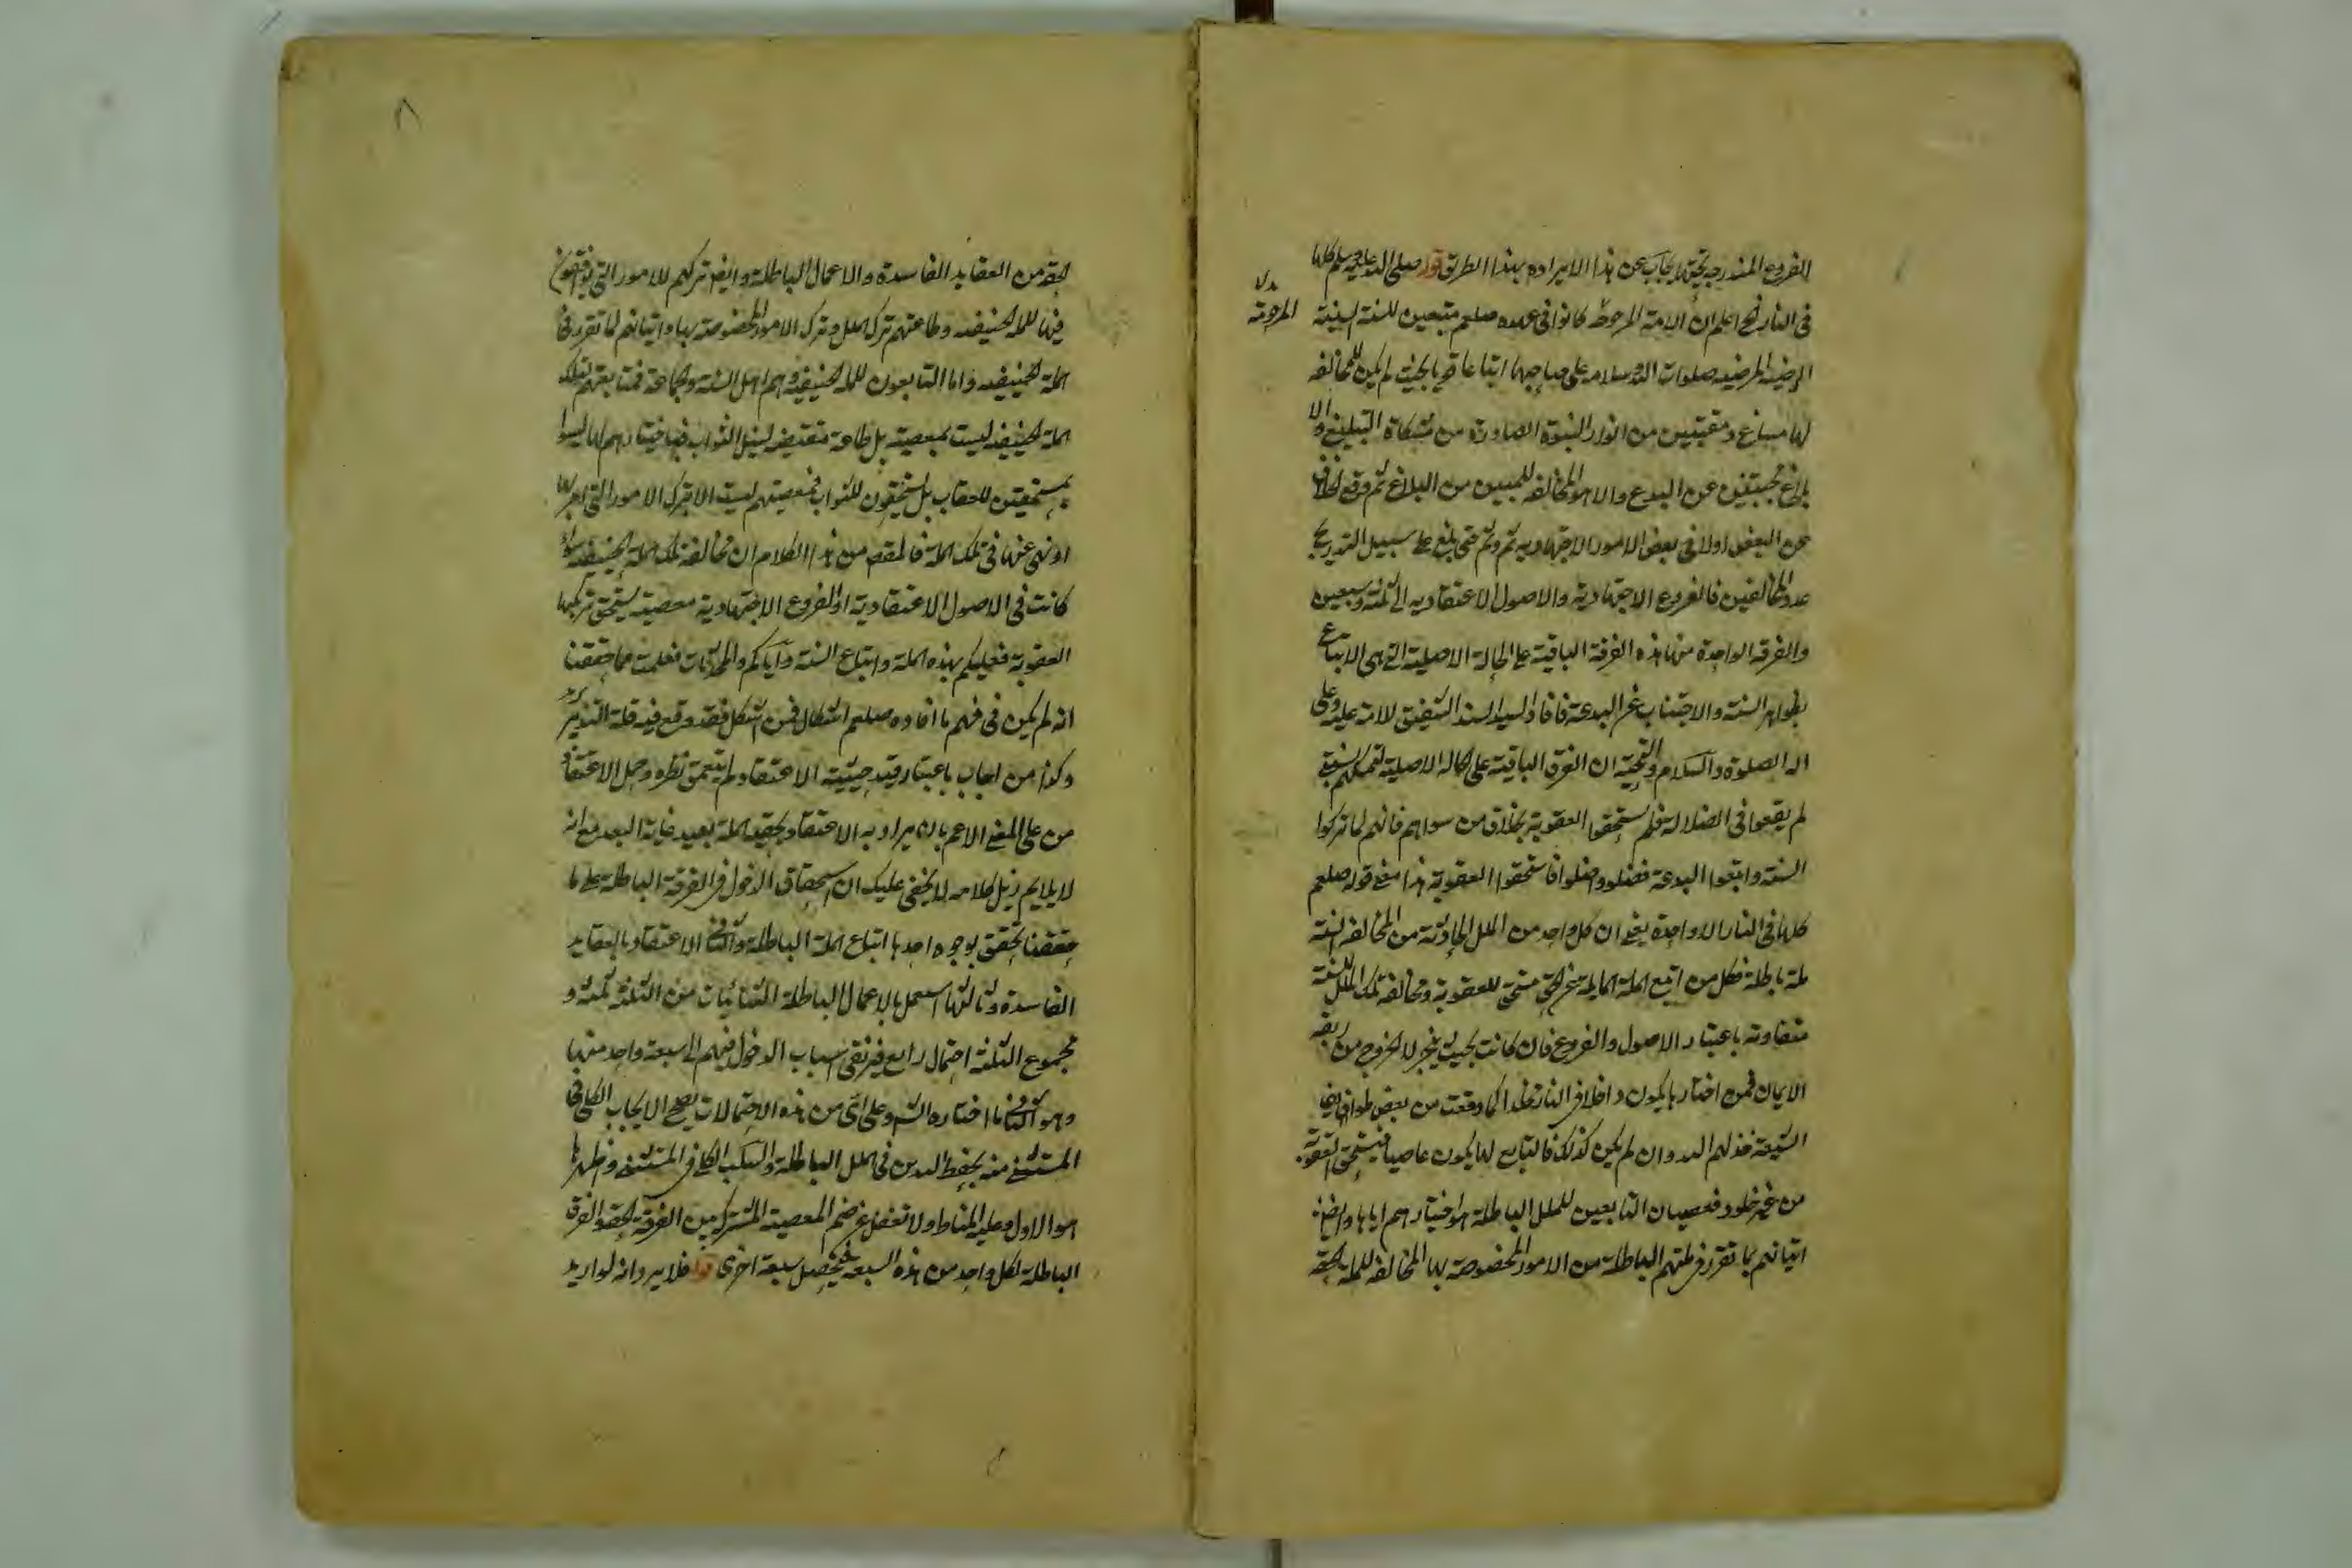 الفروع المندرجة تحتها يجاب عن هذا الايراد بهذا الطريق قوله صلى الله عليه وسلم كلها
في النار الخ اعلم ان الامة المرحومة كانوا في عهده صلعم متبعين للسنة السنية
بدل
المرحومة
الرضية المرضية صلوات الله وسلامه على صاحبها اتباعا قويا بحيث لم يكن للمخالفة
لها مساغ ومقتبسين من انوار النبوة الصادرة من مشكاة التبليغ والا
بلاغ مجتنبين عن البدع والاهواء المخالفة للمبين من البلاغ ثم وقع الخلاف
عن البعض اولا في بعض الامور الاجتهادية ثم وثم حتى بلغ على سبيل التدريج
عدد المخالفين فالفروع الاجتهادية والاصول الاعتقادية الى ثلثة وسبعين
والفرقة الواحدة منها هذه الفرقة الباقية على الحالة الاصلية التي هي الاتباع
بظواهر السنة والاجتناب عن البدعة فافاد السيد السند الشفيق للامة عليه وعلى
اله الصلوة والسلام والتحية ان الفرق الباقية على حالة الاصلية لتمسكهم بسنته
لم يقعوا في الضلالة فلم يستحقوا العقوبة بخلاف من سواهم فانهم لما تركوا
السنة واتبعوا البدعة فضلوا واضلوا فاستحقوا العقوبة هذا معنى قوله صلعم
كلها في النار الا واحدة يعني ان كل واحد من الملل الحادثة من المخالفة للسنة
ملة باطلة فكل من اتبع الملة المايلة عن الحق مستحق للعقوبة ومخالفة تلك الملل للسنة
متفاوتة باعتبار الاصول والفروع فان كانت بحيث ينجر الى الخروج من ربقة
الايمان فمن اختارها يكون داخلا في النار مخلدا كما وقعت من بعض طوايف
الشيعة خذلهم الله وان لم يكن كذلك فالتابع لها يكون عاصيا فيستحق العقوبة
من غير خلود فعصيان التابعين للملل الباطلة هو اختيارهم اياها وايضا
اتيانهم بما تقرر في ملتهم الباطلة من الامور المخصوصة بها المخالفة للملة الحقة
٨
الحقة من العقايد الفاسدة والاعمال الباطلة وايضا تركهم للامور التي
فيها للملة الحنيفية وطاعتهم ترك الملل وترك الامور المخصوصة بها واتيانهم لما تقرر في
الملة الحنيفية واما التابعون للملة الحنيفية وهم اهل السنة والجماعة فمتابعتهم لتلك
الملة الحنيفية ليست بمعصية بل طاعة مقتضية لنيل الثواب فباختيارهم لها ليسوا
بمستحقين للعقاب بل يستحقون للثواب فمعصيتهم ليست الا بترك الامور التي امر بها
او نهى عنها في تلك الملة فالمقصد من هذا الكلام ان مخالفة تلك الملة الحنيفية سواء
كانت في الاصول الاعتقادية او الفروع الاجتهادية معصية يستحق مرتكبها
العقوبة فعليكم بهذه الملة واتباع السنة واياكم والمحدثات فعلمت مما حققنا
انه لم يكن في فهم ما افاده صلعم اشكال فمن اشكل فقد وقع فيه قلة التدبر
وكذا من اجاب باعتبار قيد حيثية الاعتقاد ولم يتعمق نظره وحمل الاعتقاد
من على المعنى الاعم بان يراد به الاعتقاد بحقية الملة بعيد غاية البعد مع انه
لا يلايم ذيل كلامه لا يخفى عليك ان استحقاق الدخول في الفرقة الباطلة على ما
حققنا تحقق بوجوه احدها اتباع الملة الباطلة والثاني الاعتقاد بالعقايد
الفاسدة وثالثها العمل بالاعمال الباطلة الثنائيات من الثلثة ثلثة و
مجموع الثلثة احتمال رابع فيرتقي اسباب الدخول فيهم الى سبعة واحد منها
وهو الثاني ما اختاره الش وعلى اي من هذه الاحتمالات يصح الايجاب الكلي في
المستثنى منه بحفظ الدين في الملل الباطلة والسلب الكلي في المستثنى واظهرها
هو الاول وعليه المناط ولا تغفل عن ضم المعصية المشتركة بين الفرقة الحقة والفرق
الباطلة لكل واحد من هذه السبعة فيحصل سبعة اخرى قوله فلا يرد انه لو اريد